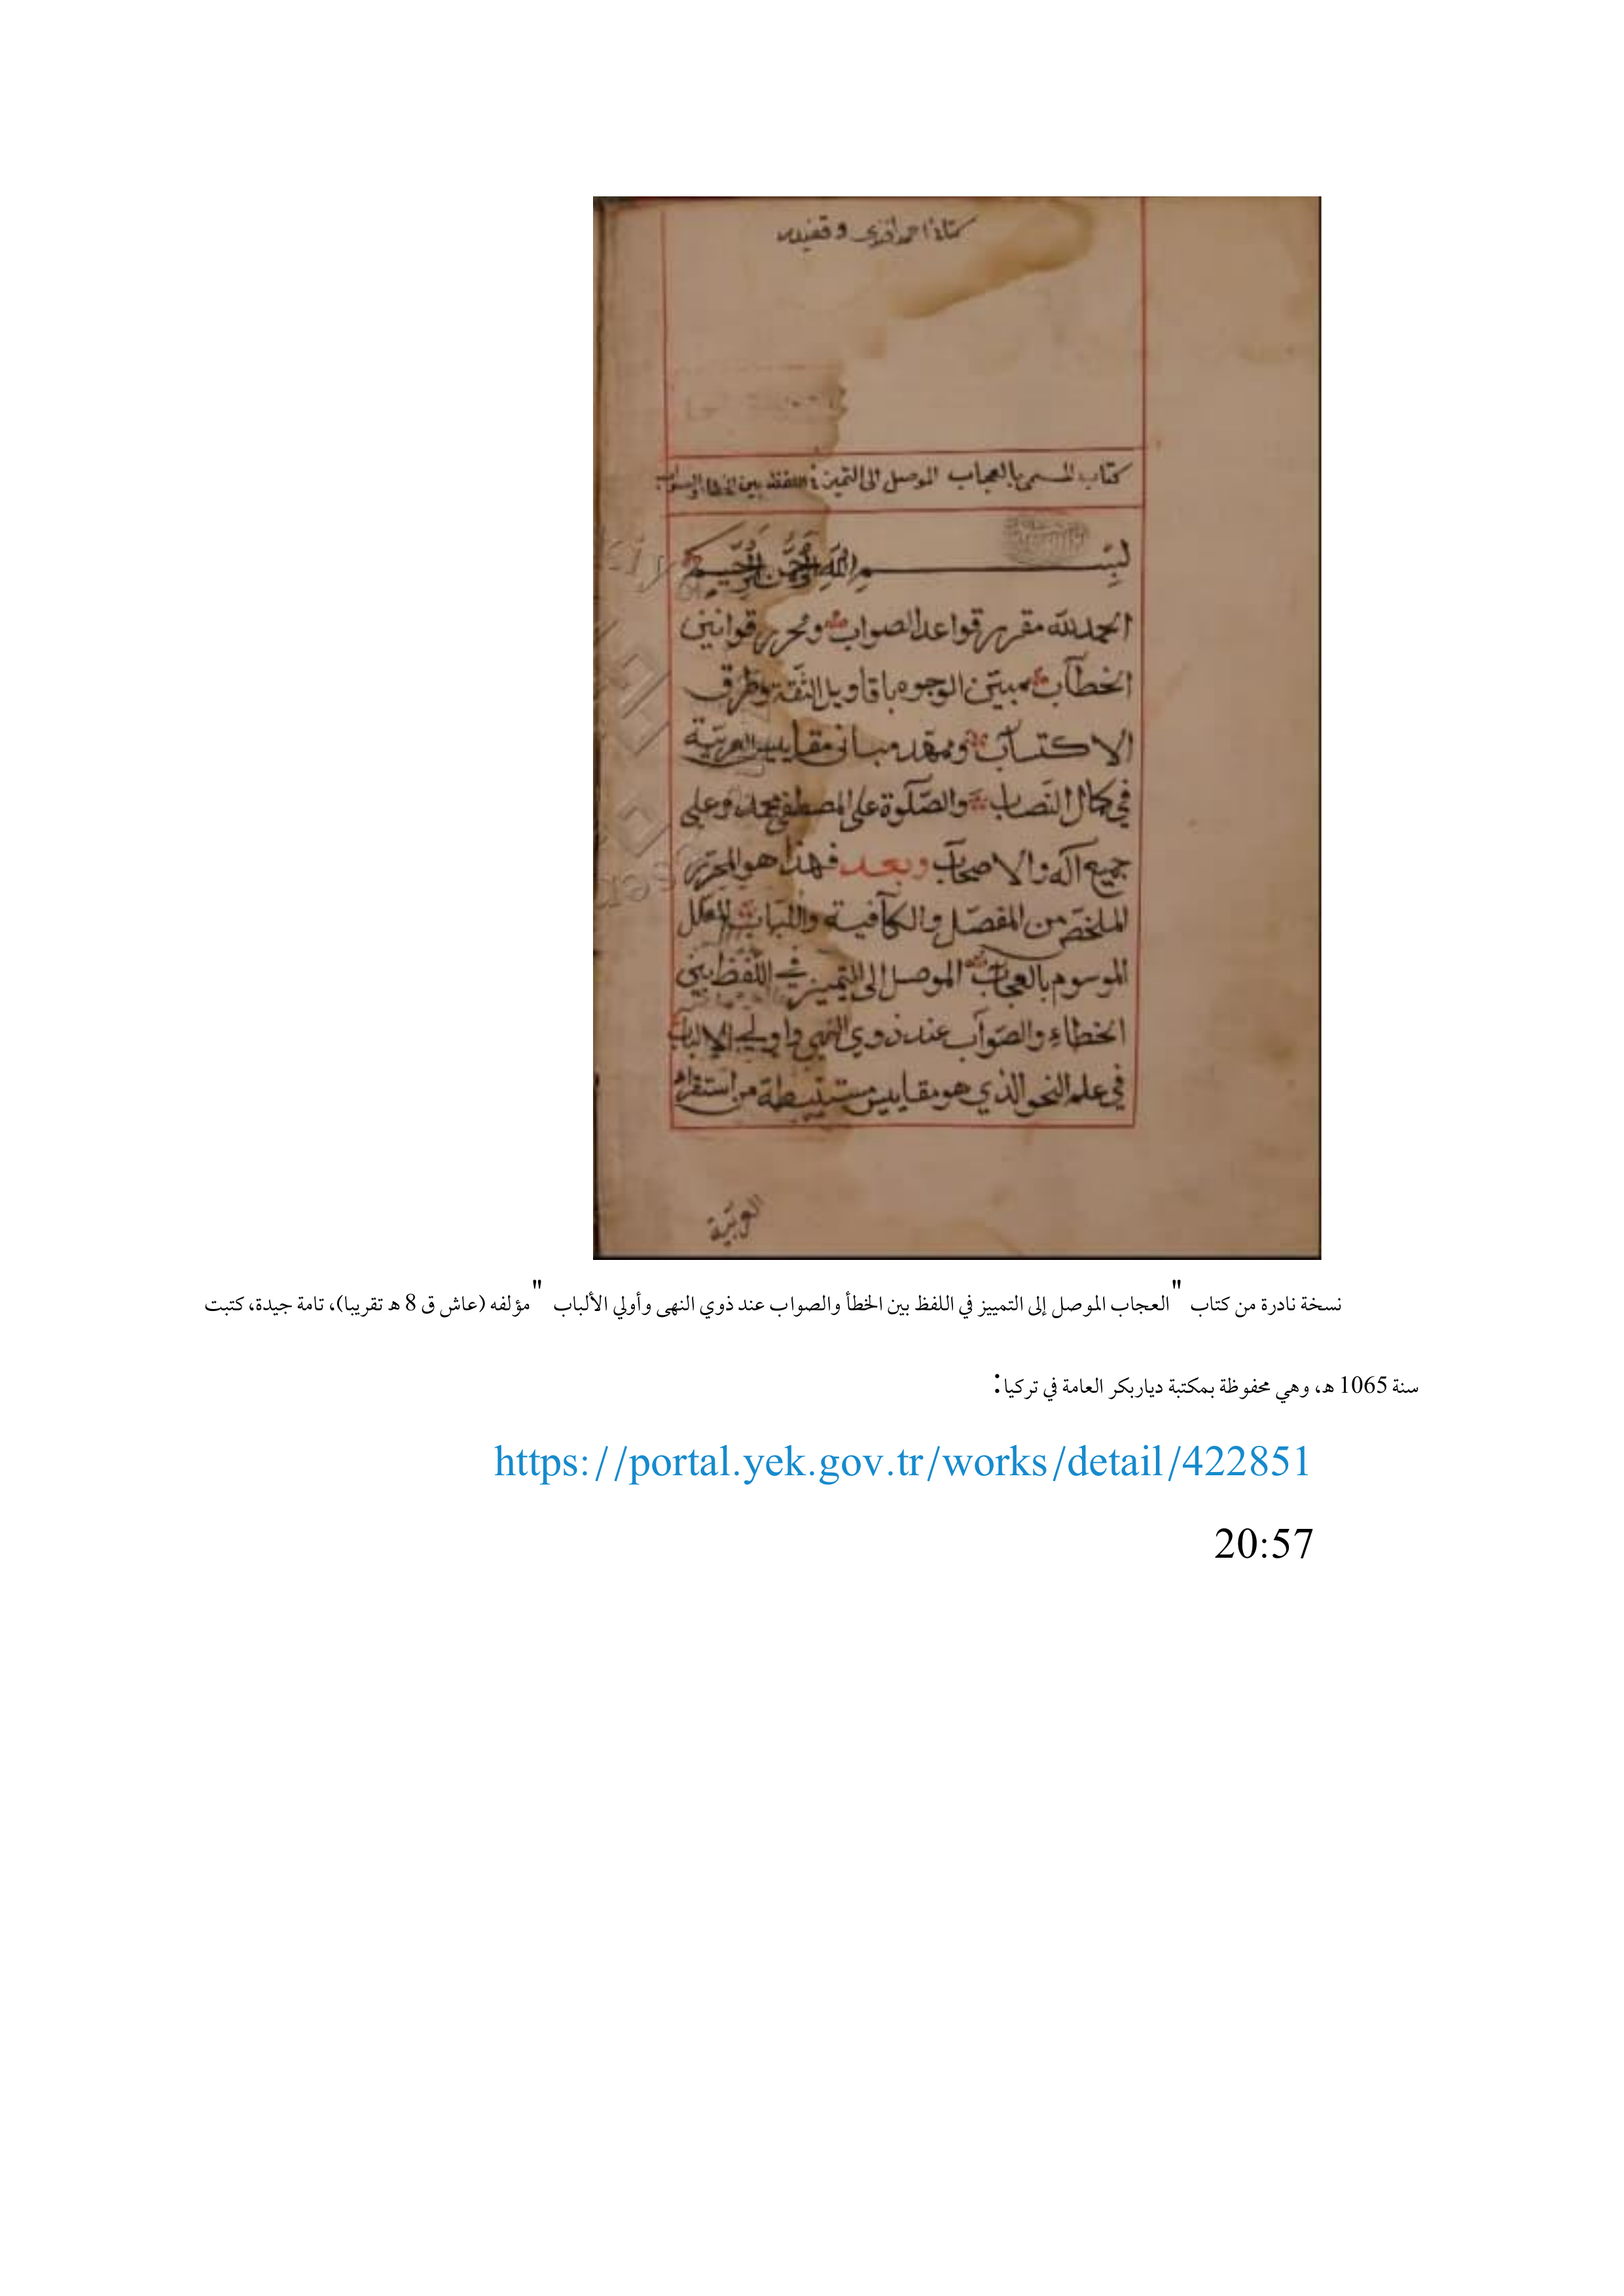 كتاب المسمى بالعجاب الموصل الى التميز في اللفظ بين الخطا والصواب
بسم الله الرحمن الرحيم
الحمد لله مقرر قواعد الصواب ومحرر قوانين
الخطآب مبيّن الوجوه باقاويل الثقة وطرق
الاكتساب وممهّد مبانى مقاييس العربيّة
في كمال النّصاب والصّلوة على المصطفى محمد وعلى
جميع آله والاصحآب وبعد فهذا هو المحرّر
الملخصّ من المفصّل والكآفية واللباب المعلل
الموسوم بالعجاب الموصل الى التميز في اللّفظ بين
الخطاء والصّوآب عند ذوي النّهى واولي الالباب
في علم النحو الذي هو مقاييس مستنبطة من استقراء
العربيّة
نسخة نادرة من كتاب "العجاب الموصل إلى التمييز في اللفظ بين الخطأ والصواب عند ذوي النهى وأولي الألباب" مؤلفه (عاش ق 8 هـ تقريبا)، تامة جيدة، كتبت
سنة 1065 هـ، وهي محفوظة بمكتبة دياربكر العامة في تركيا:
https://portal.yek.gov.tr/works/detail/422851
20:57